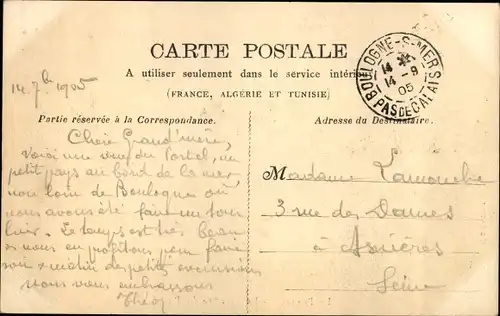 CARTE POSTALE
A utiliser seulement dans le service intérieur
(FRANCE, ALGÉRIE ET TUNISIE)
BOULOGNE-S-MER
14 - 9
05
PAS DE CALAIS
14. 7bre 1905
Partie réservée à la Correspondance.
Chère Grand'mère,
Voici une vue du Portel, un
petit pays au bord de la mer
non loin de Boulogne où
nous avons été faire un tour
hier. Le temps est très beau
et nous en profitons pour faire
soir & matin des petites excursions
Nous vous embrassons
Adresse du Destinataire.
Madame Lamouche
3 rue des Dames
à Asnières
Seine